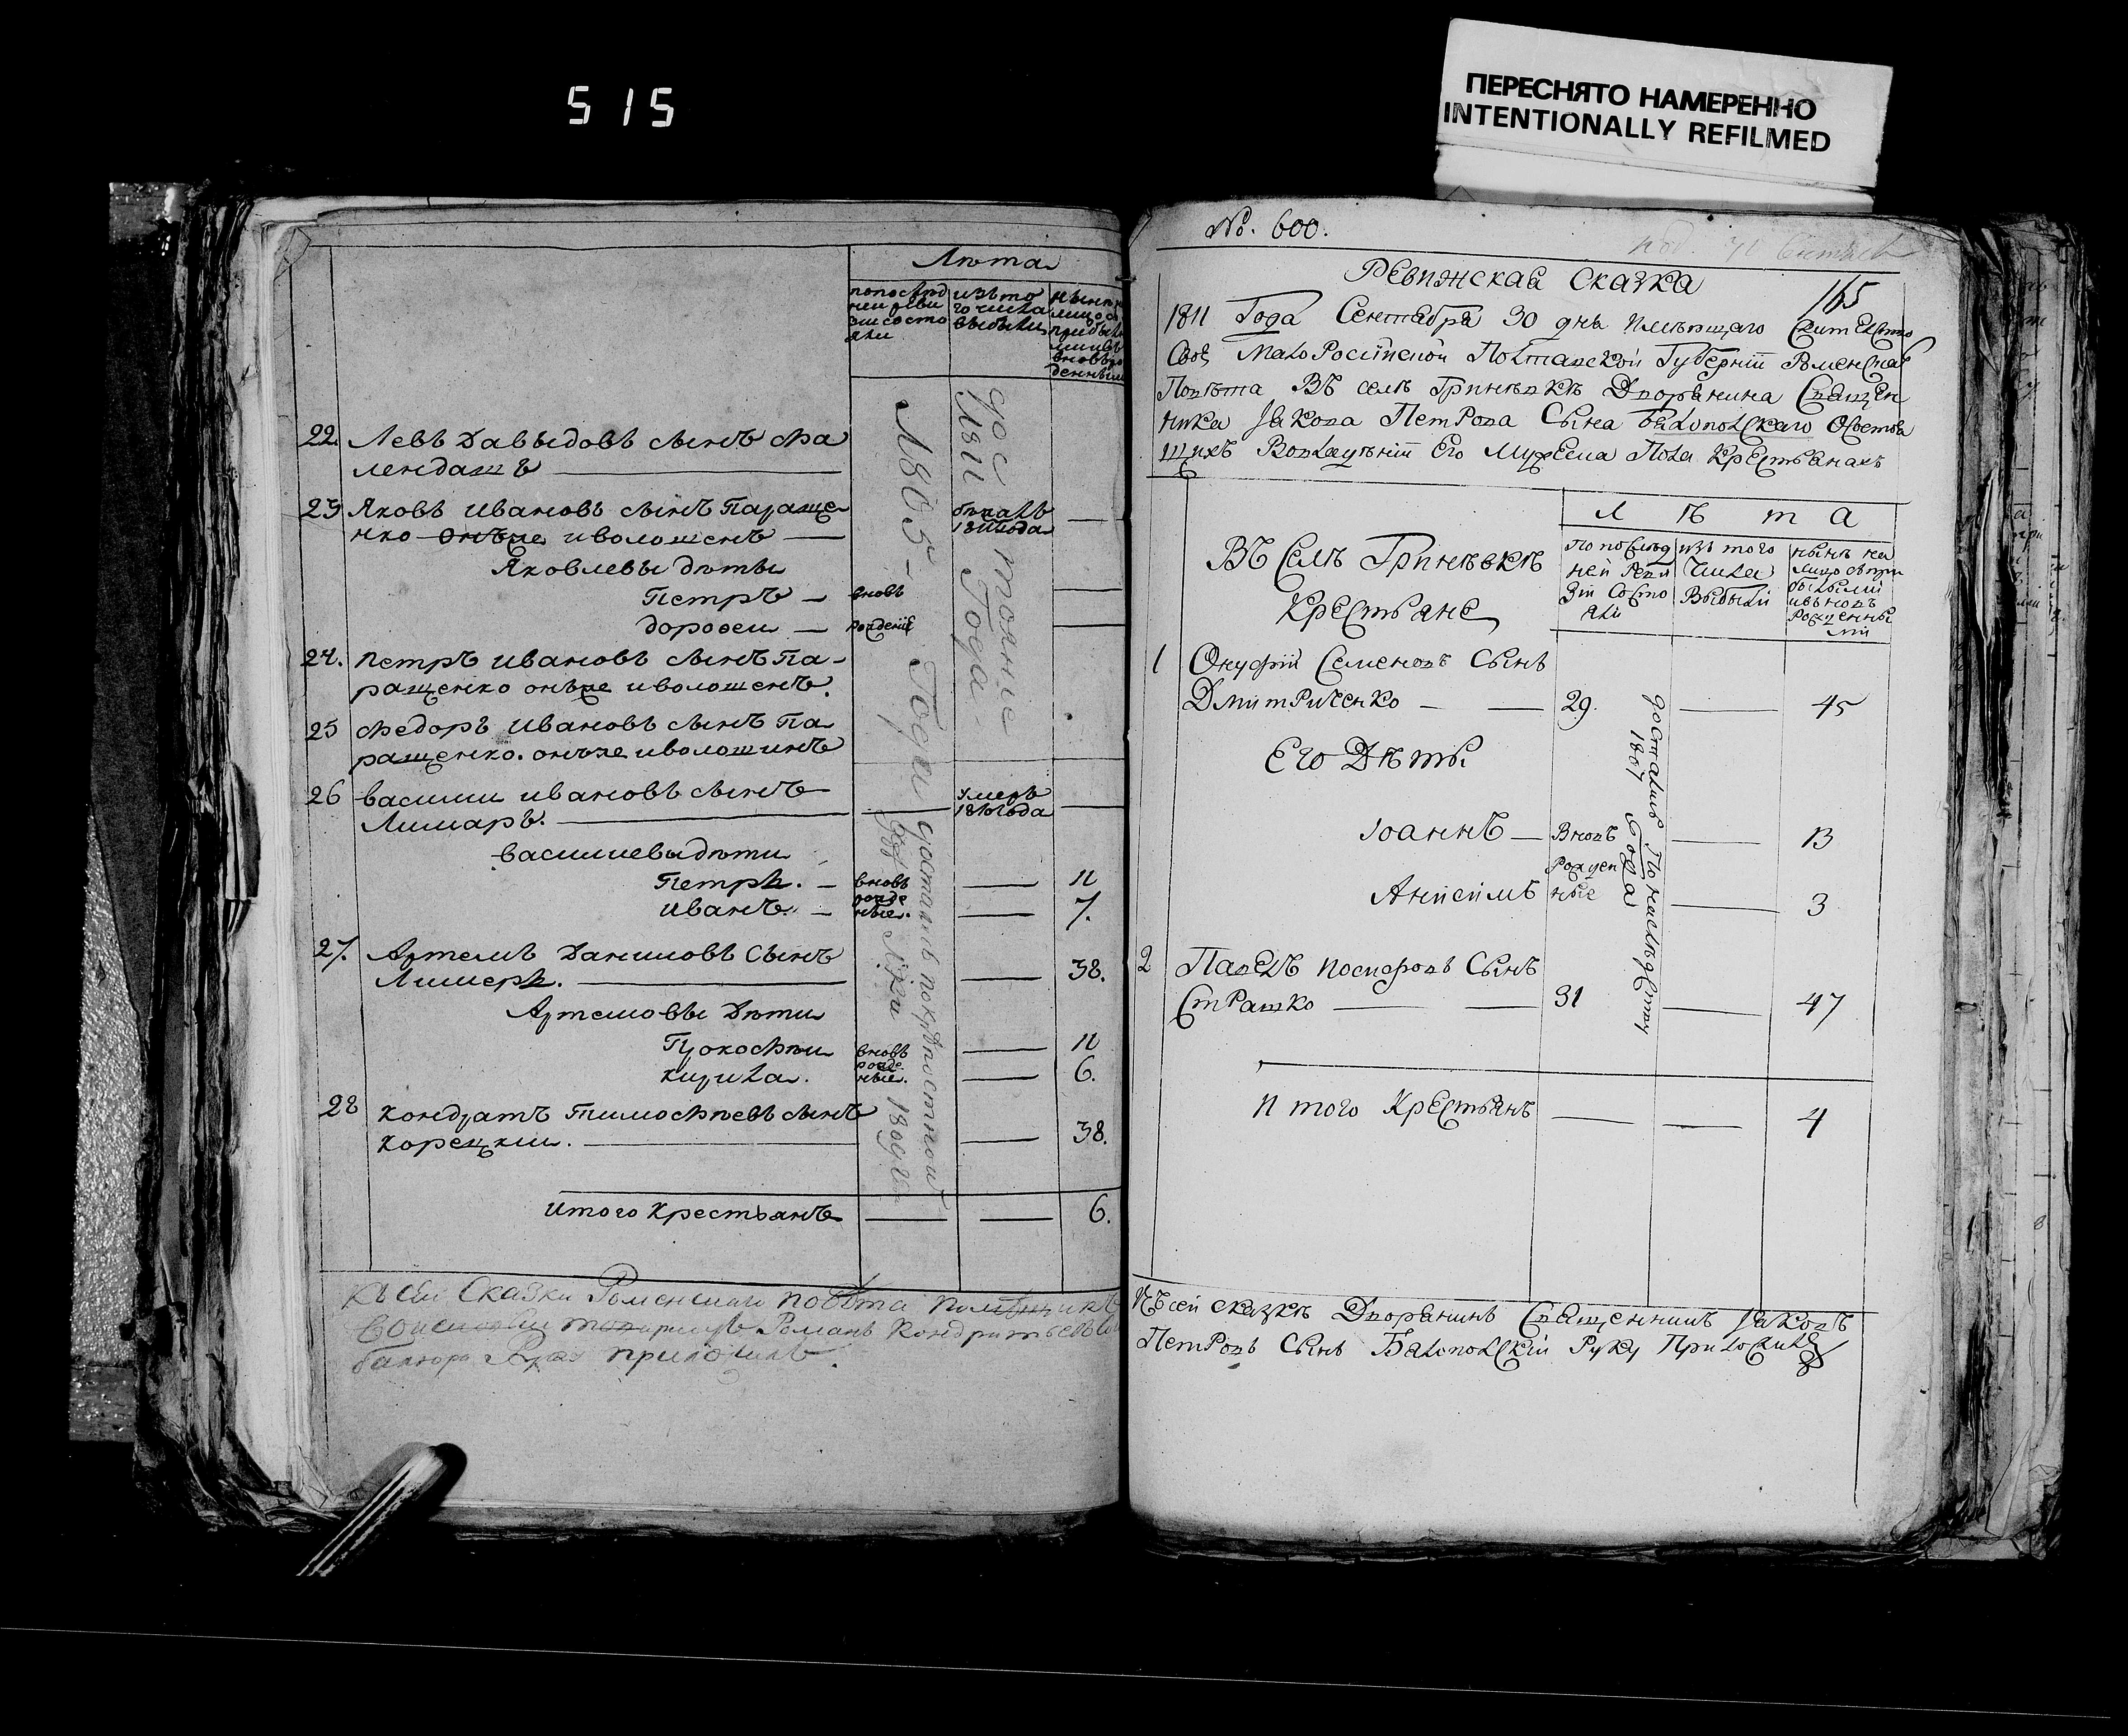 515
ПЕРЕСНЯТО НАМЕРЕННО
INTENTIONALLY REFILMED
Лѣта
попослѣд
ней реви
зіи состо
яли
изъ то
го числа
выбыли
22. Левъ Давыдовъ сынъ Фа
лендашъ
23 Яковъ Ивановъ сынъ Параще
нко онъже иволошенъ
бѣжалъ
1811года
Яковлевы дѣти
Петръ — вновь
дорофеи — рожденіе
24. петръ Ивановъ сынъ Па-
ращенко онъже иволошенъ.
25 Федоръ Ивановъ сынъ Па
ращенко. онъже иволошинъ
26 василии ивановъ сынъ
Лимаръ.
умеръ
1810года
василиевы дѣти
Петръ. — вновь 11
иванъ. — рожде ные. 7.
27. Артемъ Даниловъ Сынъ
Лимеръ. 38.
Артемовы Дѣти
Прокофѣи вновь 11
кирила. рожде ные. 6.
28 кондратъ Тимофѣевъ сынъ
корецкии. 38.
Итого крестьянъ 6.
1805
Года достались покрѣпостной
1809
Къ сей Сказки Роменскаго повѣта
Романъ Кондратьевъ
приложилъ.
№. 600.
165
Ревижская Сказка
1811 Года Сентября 30 дня имѣющаго жительство
Своё МалоРосійской Полтавской Губерніи Роменскаго
Повѣта Въ селѣ Гриневкѣ Дворянина Священ
ника Іакова Петрова Сына Балопольскаго Осостоя
щихъ Вовладѣніи Его Мужеска Пола Крестьянахъ
Въ Селѣ Гриневкѣ
Крестьяне
Л ѣ т а
По послѣд
ней Реви
зіи Состо
яли
изъ того
Числа
Выбыли
нынѣ на
лицо съпри
былыми
ивъновъ
Рожденны
ми
1 Онуфрій Семеновъ Сынъ
Дмитриченко — — 29. — 45
Его Дѣты
Іоаннъ — Вновъ — 13
Рожден
Анисимъ ные — 3
2 Павелъ Никифоровъ Сынъ
Страшко — — 31 — 47
достались Понаслѣдству
1807 Года
И того Крестьянъ — — 4
Къ сей сказкѣ Дворянинъ Священникъ Іаковъ
Петровъ Сынъ Балопольскій Руку Приложилъ